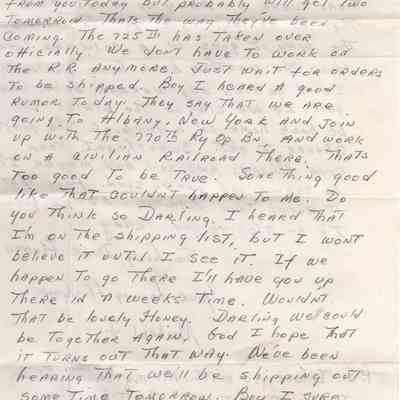 from you today but probably will get two
tomorrow. Thats the way they've been
coming. The 725th has taken over
officially. We dont have to work on
the R.R. anymore. Just wait for orders
to be shipped. Boy I heard a good
rumor today. They say that we are
going to Albany, New York and join
up with the 770th Ry Op Bn. and work
on a civilian railroad there. Thats
too good to be true. Something good
like that couldn't happen to me. Do
you think so Darling. I heard that
I'm on the shipping list, but I wont
believe it until I see it. If we
happen to go there I'll have you up
there in a weeks time. Wouldn't
that be lovely Honey. Darling we could
be together again. God I hope that
it turns out that way. We've been
hearing that we'll be shipping out
some time tomorrow. Boy I sure